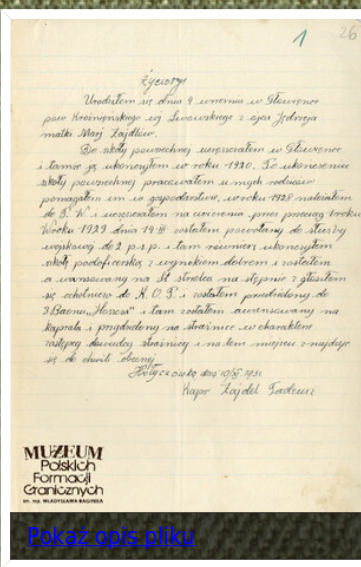 1 26
Życiorys
Urodziłem się dnia 4 wrzesnia w
pow Krośnieńskiego woj Lwowskiego z ojca Jędrzeja
matki Marj Zajdlów.
Do szkoły powszechnej uczęszczałem w
i tamże ją ukonczyłem w roku 1920. Po ukonczeniu
szkoły powszechnej pracowałem u mych rodziców
pomagałem im w gospodarstwie, w roku 1928 należałem
do P. W. i uczęszczałem na cwiczenia przez przeciąg 1 roku
W roku 1929 dnia zostałem powołany do słuzby
wojskowej do 2 p.s.p. i tam rownież ukonczyłem
szkołę podoficerską z wynikiem dobrem i zostałem
awansowany na St strzelca na stępnie zgłosiłem
się ochotniczo do K. O. P. i zostałem przydzielony do
3 Baonu „Hoszcza” i tam zostałem awansowany na
kaprala i przydzielony na strażnice w charakterze
zastępcy dowodcy strażnicy i na tem miejscu znajduje
się do chwili obecnej
dnia
Kapr Zajdel Tadeusz
MUZEUM
Polskich
Formacji
Granicznych
im. mjr. WŁADYSŁAWA RAGINISA
Pokaż opis pliku